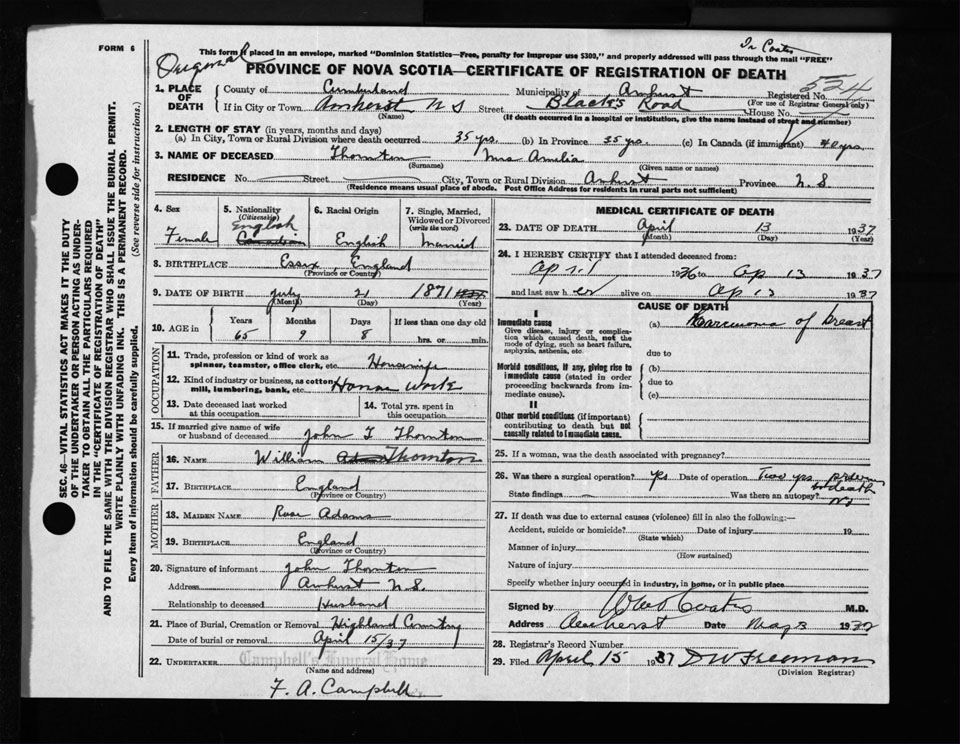 FORM 6
Original
Dr Coates
This form if placed in an envelope, marked "Dominion Statistics—Free, penalty for improper use $300," and properly addressed will pass through the mail "FREE"
PROVINCE OF NOVA SCOTIA—CERTIFICATE OF REGISTRATION OF DEATH
524
1. PLACE OF DEATH County of Cumberland Municipality of Amherst Registered No.
(For use of Registrar General only)
If in City or Town Amherst N S Street Black's Road House No.
(Name) (If death occurred in a hospital or institution, give the name instead of street and number)
2. LENGTH OF STAY (in years, months and days)
(a) In City, Town or Rural Division where death occurred 35 yrs. (b) In Province 35 yrs. (c) In Canada (if immigrant) 40 yrs.
3. NAME OF DECEASED Thornton Mrs Amelia
(Surname) (Given name or names)
RESIDENCE No. Street City, Town or Rural Division Amherst Province N.S
(Residence means usual place of abode. Post Office Address for residents in rural parts not sufficient)
4. Sex Female
5. Nationality (Citizenship) English Canadian
6. Racial Origin English
7. Single, Married, Widowed or Divorced (write the word) Married
8. BIRTHPLACE Essix, England
(Province or Country)
9. DATE OF BIRTH July 21 1871
(Month) (Day) (Year)
10. AGE in Years 65 Months 9 Days 8 If less than one day old hrs. or min.
OCCUPATION
11. Trade, profession or kind of work as spinner, teamster, office clerk, etc. Housewife
12. Kind of industry or business, as cotton mill, lumbering, bank, etc. House Work
13. Date deceased last worked at this occupation
14. Total yrs. spent in this occupation
15. If married give name of wife or husband of deceased John T Thornton
FATHER
16. NAME William Adams Thornton
17. BIRTHPLACE England
(Province or Country)
MOTHER
18. MAIDEN NAME Rose Adams
19. BIRTHPLACE England
(Province or Country)
20. Signature of informant John Thornton
Address Amherst N.S.
Relationship to deceased Husband
21. Place of Burial, Cremation or Removal Highland
Date of burial or removal April 15/37
22. UNDERTAKER Campbell's Funeral Home
(Name and address)
F. A. Campbell
MEDICAL CERTIFICATE OF DEATH
23. DATE OF DEATH April 13 1937
(Month) (Day) (Year)
24. I HEREBY CERTIFY that I attended deceased from:
April 1936 to Ap 13 1937
and last saw her alive on Ap 12 1937
CAUSE OF DEATH
I
Immediate cause
Give disease, injury or complication which caused death, not the mode of dying, such as heart failure, asphyxia, asthenia, etc.
(a) Carcinoma of breast
due to
Morbid conditions, if any, giving rise to immediate cause (stated in order proceeding backwards from immediate cause).
(b)
due to
(c)
II
Other morbid conditions (if important) contributing to death but not causally related to immediate cause.
25. If a woman, was the death associated with pregnancy?
26. Was there a surgical operation? yes Date of operation Two yrs to death
State findings Was there an autopsy? No
27. If death was due to external causes (violence) fill in also the following:—
Accident, suicide or homicide? Date of injury 19
(State which)
Manner of injury
(How sustained)
Nature of injury
Specify whether injury occurred in industry, in home, or in public place
Signed by Coates M.D.
Address Amherst Date May 3 1937
28. Registrar's Record Number
29. Filed April 15 1937 D W Freeman
(Division Registrar)
SEC. 46—VITAL STATISTICS ACT MAKES IT THE DUTY
OF THE UNDERTAKER OR PERSON ACTING AS UNDER-
TAKER TO OBTAIN ALL THE PARTICULARS REQUIRED
IN THE "CERTIFICATE OF REGISTRATION OF DEATH"
AND TO FILE THE SAME WITH THE DIVISION REGISTRAR WHO SHALL ISSUE THE BURIAL PERMIT.
WRITE PLAINLY WITH UNFADING INK. THIS IS A PERMANENT RECORD.
Every item of information should be carefully supplied. (See reverse side for instructions.)